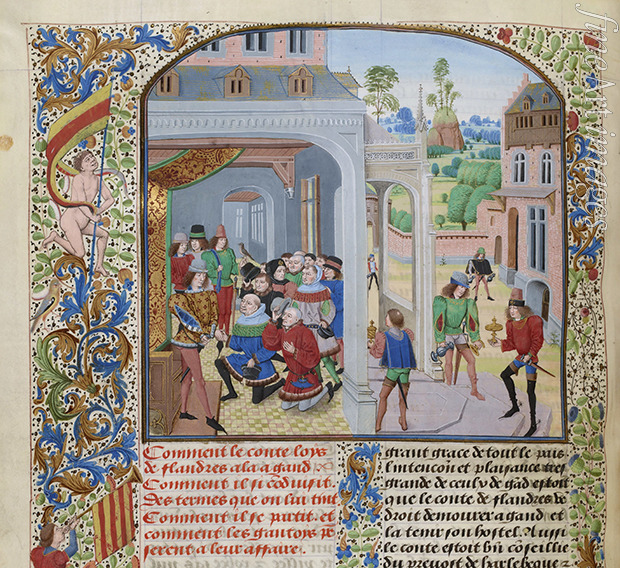 Comment le conte loys
de flandres ala a gand
Comment il si cōduisit.
Des termes que on lui tint
Comment il se partit. et
comment les gantois pē
serent a leur affaire.
grant grace de tout le pais
lintencoit et plaisance tres
grande de ceulx de gād estoit
que le conte de flandres de
droit demourer a gand et
la tenir son hostel. Aussi
le conte estoit biē cōseillie
du prevost de harlebeque
fineartimages